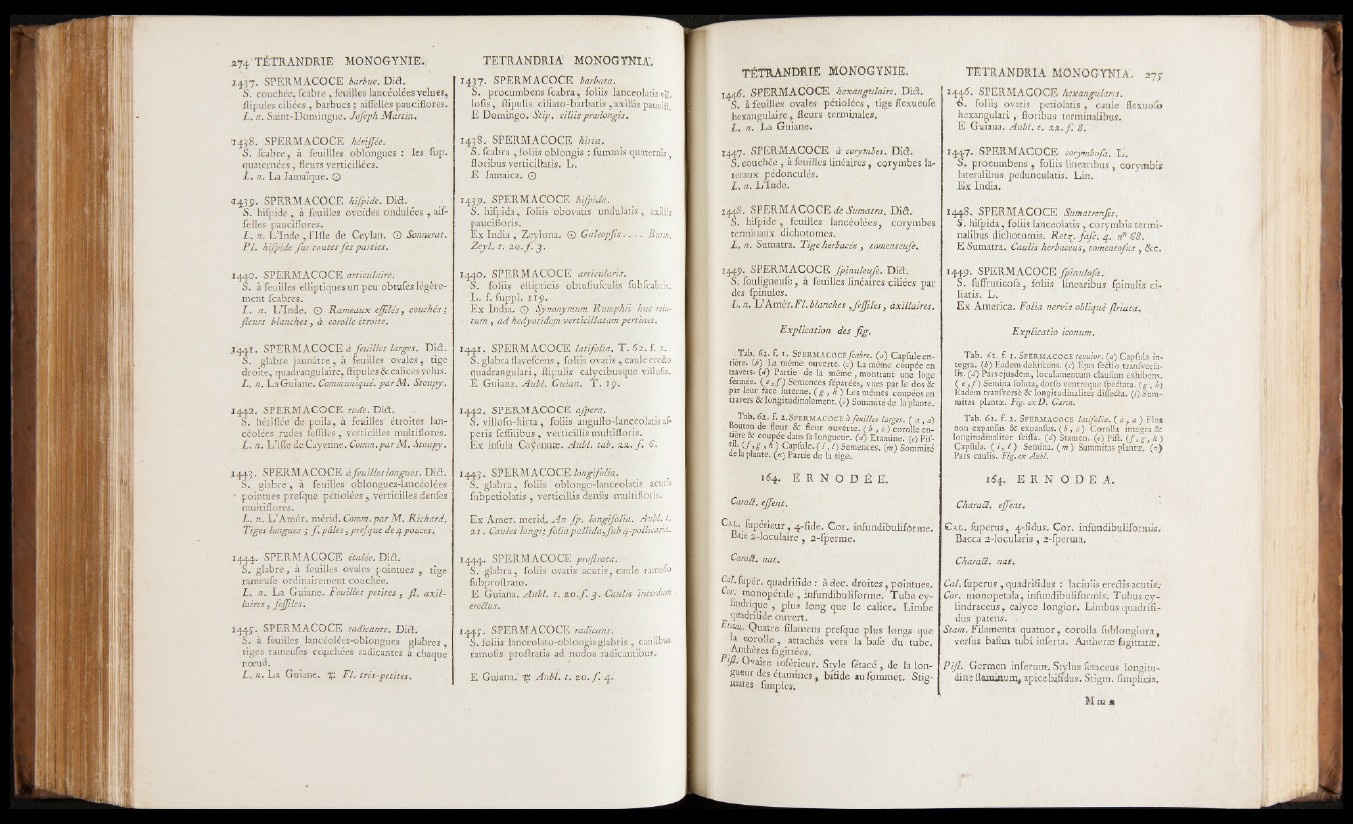 274 TÉTRANDRIE MONOGYNIE.
1437. SPERMACOCE barbue. Dict.
S. couchée, scabre, feuilles lancéolées velues,
stipules ciliées, barbues; aisselles pauciflores.
L. n. Saint-Domingue. Joseph Martin.
1438. SPERMACOCE hérissée.
S. scabre, à feuillles oblongues : les sup.
quaternées, fleurs verticillées.
L. n. La Jamaïque. ☉
1439. SPERMACOCE hispide. Dict.
S. hispide, à feuilles ovoïdes ondulées, ais-
selles pauciflores.
L. n. L'Inde, l'Isle de Ceylan. ☉ Sonnerat.
Pl. hispide sur toutes ses parties.
1440. SPERMACOCE articulaire.
S. à feuilles elliptiques un peu obtuses légère-
ment scabres.
L. n. L'Inde. ☉ Rameaux effilés, couchés;
fleurs blanches, à corolle étroite.
1441. SPERMACOCE à feuilles larges. Dict.
S. glabre jaunâtre, à feuilles ovales, tige
droite, quadrangulaire, stipules & calices velus.
L. n. La Guiane. Communiqué. par M. Stoupy.
1442. SPERMACOCE rude. Dict.
S. hérissée de poils, à feuilles étroites lan-
céolées rudes sessiles, verticilles multiflores.
L. n. L'Isle de Cayenne. Comm. par M. Stoupy.
1443. SPERMACOCE à feuilles longues. Dict.
S. glabre, à feuilles oblongues-lancéolées
pointues presque pétiolées, verticilles denses
multiflores.
L. n. L'Amér. mérid. Comm. par M. Richard.
Tiges longues; f. pâles, presque de 4 pouces.
1444. SPERMACOCE étalée. Dict.
S. glabre, à feuilles ovales pointues, tige
rameuse ordinairement couchée.
L. n. La Guiane. Feuilles petites, fl. axil-
laires, sessiles.
1445. SPERMACOCE radicante. Dict.
S. à feuilles lancéolées-oblongues glabres,
tiges rameuses couchées radicantes à chaque
nœud.
L. n. La Guiane. ♃ Fl. très-petites.
TETRANDRIA MONOGYNIA.
1437. SPERMACOCE barbata.
S. procumbens scabra, foliis lanceolatis vil-
losis, stipulis ciliato-barbatis, axillis paucifl.
E Domingo. Stip. ciliis prælongis.
1438. SPERMACOCE hirta.
S. scabra, foliis oblongis : summis quaternis,
floribus verticillatis. L.
E Jamaica. ☉
1439. SPERMACOCE hispida.
S. hispida, foliis obovatis undulatis, axillis
paucifloris.
Ex India, Zeylona. ☉ Galeopsis.... Burm.
Zeyl. t. 20. f. 3.
1440. SPERMACOCE articularis.
S. foliis ellipticis obtusiusculis subscabris.
L. f. suppl. 119.
Ex India. ☉ Synonymum Rumphii huc rela-
tum, ad hedyotidem verticillatam pertinet.
1441. SPERMACOCE latifolia. T. 62. f. 2.
S. glabra flavescens, foliis ovatis, caule erecto
quadrangulari, stipulis calycibusque villosis.
E Guiana. Aubl. Guian. T. 19.
1442. SPERMACOCE aspera.
S. villoso-hirta, foliis angusto-lanceolatis as-
peris sessilibus, verticillis multifloris.
Ex insula Cayennæ. Aubl. tab. 22. f. 6.
1443. SPERMACOCE longifolia.
S. glabra, foliis oblongo-lanceolatis acutis
subpetiolatis, verticillis densis multifloris.
Ex Amer. merid. An sp. longifolia. Aubl. t.
21. Caules longi; folia pallida, sub 4-pollicaria.
1444. SPERMACOCE prostrata.
S. glabra, foliis ovatis acutis, caule ramoso
subprostrato.
E Guiana. Aubl. t. 20. f. 3. Caulis interdum
erectus.
1445. SPERMACOCE radicans.
S. foliis lanceolato-oblongis glabris, caulibus
ramosis prostratis ad nodos radicantibus.
E Guiana. ♃ Aubl. t. 20. f. 4.
TÉTRANDRIE MONOGYNIE.
1446. SPERMACOCE hexangulaire. Dict.
S. à feuilles ovales pétiolées, tige flexueuse
hexangulaire, fleurs terminales.
L. n. La Guiane.
1447. SPERMACOCE à corymbes. Dict.
S. couchée, à feuilles linéaires, corymbes la-
téraux pédonculés.
L. n. L'Inde.
1448. SPERMACOCE de Sumatra. Dict.
S. hispide, feuilles lancéolées, corymbes
terminaux dichotomes.
L. n. Sumatra. Tige herbacée, tomenteuse.
1449. SPERMACOCE spinuleuse. Dict.
S. fouligneuse, à feuilles linéaires ciliées par
des spinules.
L. n. L'Amér. Fl. blanches, sessiles, axillaires.
Explication des fig.
Tab. 62. f. 1. SPERMACOCE scabre. (a) Capsule en-
tière. (b) La même ouverte. (c) La même coupée en
travers. (d) Partie de la même, montrant une loge
fermée. (e, f) Semences séparées, vues par le dos &
par leur face interne. (g, h) Les mêmes coupées en
travers & longitudinalement. (i) Sommité de la plante.
Tab. 62. f. 2. SPERMACOCE à feuilles larges. (a, a)
Bouton de fleur & fleur ouverte. (b, c) corolle en-
tière & coupée dans sa longueur. (d) Etamine. (e) Pis-
til. (f, g, h) Capsule. (i, l) Semences. (m) Sommité
de la plante. (n) Partie de la tige.
164. ERNODÉE.
Caract. essent.
CAL. supérieur, 4-fide. Cor. infundibuliforme.
Baie 2-loculaire, 2-sperme.
Caract. nat.
Cal. supér. quadrifide : à dec. droites, pointues.
Cor. monopétale, infundibuliforme. Tube cy-
lindrique, plus long que le calice. Limbe
quadrifide ouvert.
Etam. Quatre filamens presque plus longs que
la corolle, attachés vers la base du tube.
Anthères sagittées.
Pist. Ovaire inférieur. Style sétacé, de la lon-
gueur des étamines, bifide au sommet. Stig-
mates simples.
TETRANDRIA MONOGYNIA. 275
1446. SPERMACOCE hexangularis.
S. foliis ovatis petiolatis, caule flexuoso
hexangulari, floribus terminalibus.
E Guiana. Aubl. t. 22. f. 8.
1447. SPERMACOCE corymbosa. L.
S. procumbens, foliis linearibus, corymbis
lateralibus pedunculatis. Lin.
Ex India.
1448. SPERMACOCE Sumatrensis.
S. hispida, foliis lanceolatis, corymbis termi-
nalibus dichotomis. Retz. fasc. 4. n° 68.
E Sumatra. Caulis herbaceus, tomentosus, &c.
1449. SPERMACOCE spinulosa.
S. suffruticosa, foliis linearibus spinulis ci-
liatis. L.
Ex America. Folia nervis obliquè striata.
Explicatio iconum.
Tab. 62. f. 1. SPERMACOCE tenuior. (a) Capsula in-
tegra. (b) Eadem dehiscens. (c) Ejus sectio transversa-
lis. (d) Pars ejusdem, loculamentum clausum exhibens.
(e, f) Semina soluta, dorso ventreque spectata. (g, h)
Eadem transversè & longitudinaliter dissecta. (i) Sum-
mitas plantæ. Fig. ex D. Gærtn.
Tab. 62. f. 2. SPERMACOCE latifolia. (a, a) Flos
non expansus & expansus. (b, c) Corolla integra &
longitudinaliter scissa. (d) Stamen. (e) Pist. (f, g, h)
Capsula. (i, l) Semina. (m) Summitas plantæ. (n)
Pars caulis. Fig. ex Aubl.
164. ERNODEA.
Charact. essent.
CAL. superus, 4-fidus. Cor. infundibuliformis.
Bacca 2-locularis, 2-sperma.
Charact. nat.
Cal. superus, quadrifidus : laciniis erectis acutis.
Cor. monopetala, infundibuliformis. Tubus cy-
lindraceus, calyce longior. Limbus quadrifi-
dus patens.
Stam. Filamenta quatuor, corolla sublongiora,
versus basim tubi inserta. Antheræ sagittatæ.
Pist. Germen inferum. Stylus setaceus longitu-
dine staminum, apice bifidus. Stigm. simplicia.
M m 2